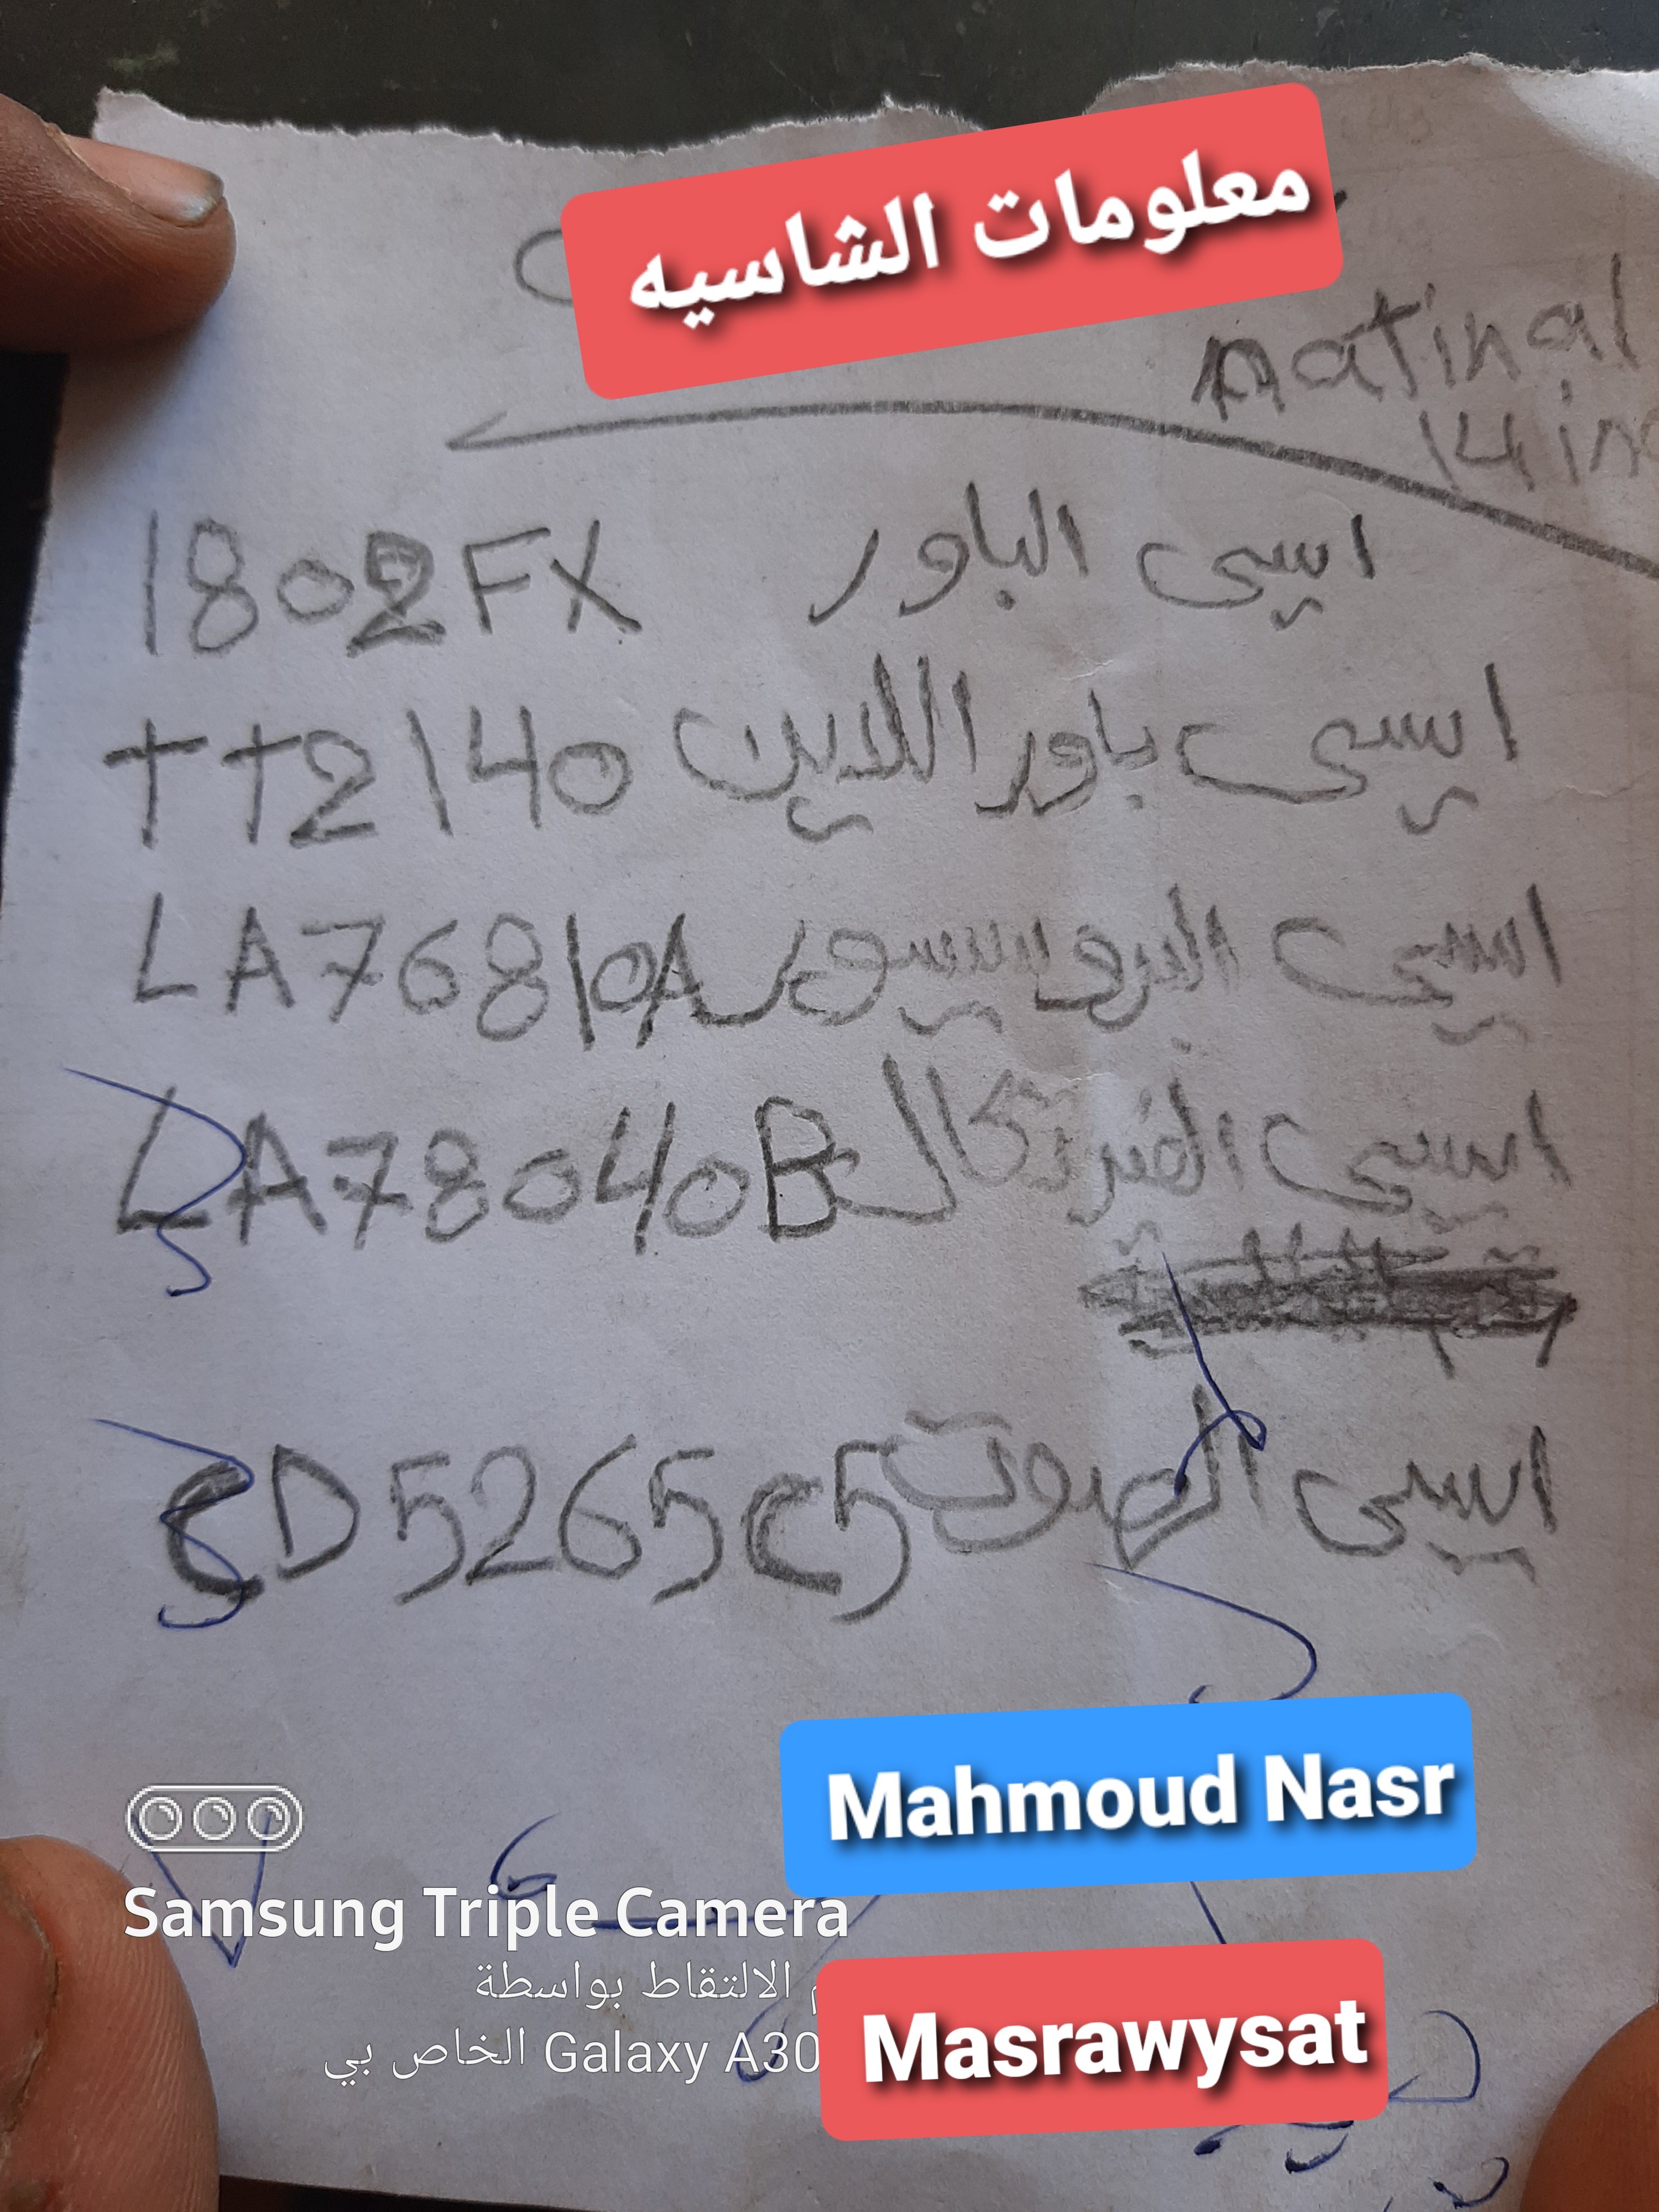 معلومات الشاسيه
natinal
14 in
اسيى الباور 1802FX
اسيى باور اللاين TT2140
اسيى البروسيسور LA76810A
اسيى الفيرتكال LA78040B
اسيى الصوت CD5265C5
Mahmoud Nasr
Samsung Triple Camera
الالتقاط بواسطة
Galaxy A30 الخاص بي
Masrawysat